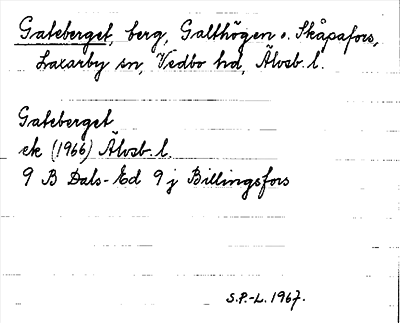 Gateberget, berg, Galthögen o. Skåpafors,
Laxarby sn, Vedbo hd, Älvsb. l.
Gateberget
ek (1966) Älvsb. l.
9 B Dals-Ed 9 j Billingsfors
S.P.-L. 1967.